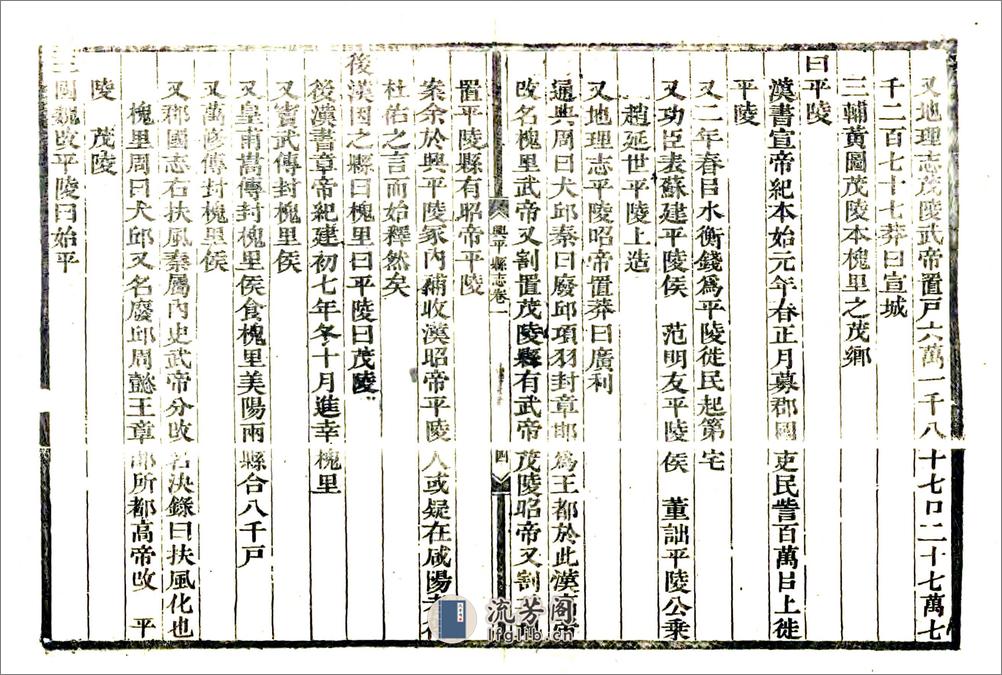 又地理志茂陵武帝置戸六萬一千八十七口二十七萬七
千二百七十七莽曰宣城
三輔黃圖茂陵本槐里之茂鄉
曰平陵
漢書宣帝紀本始元年春正月募郡國吏民訾百萬㠯上徙
平陵
又二年春㠯水衡錢爲平陵徙民起第宅
又功臣表蘇建平陵侯 范明友平陵侯 董詘平陵公乗
趙延世平陵上造
又地理志平陵昭帝置莽曰廣利
通典周曰犬邱秦曰廢邱項羽封章邯爲王都於此漢
改名槐里武帝又割置茂陵縣有武帝茂陵昭帝又割
興平縣志卷一
四
置平陵縣有昭帝平陵
案余於興平陵冢內補收漢昭帝平陵人或疑在咸陽
杜佑之言而始釋然矣
後漢因之縣曰槐里曰平陵曰茂陵
後漢書章帝紀建初七年冬十月進幸槐里
又竇武傳封槐里侯
又皇甫嵩傳封槐里侯食槐里美陽兩縣合八千戸
又萬修傳封槐里侯
又郡國志右扶風秦屬內史武帝分改名決錄曰扶風化也
槐里周曰犬邱又名廢邱周懿王章邯所都高帝改 平
陵 茂陵
三國魏改平陵曰始平
流芳閣
lfglib.cn